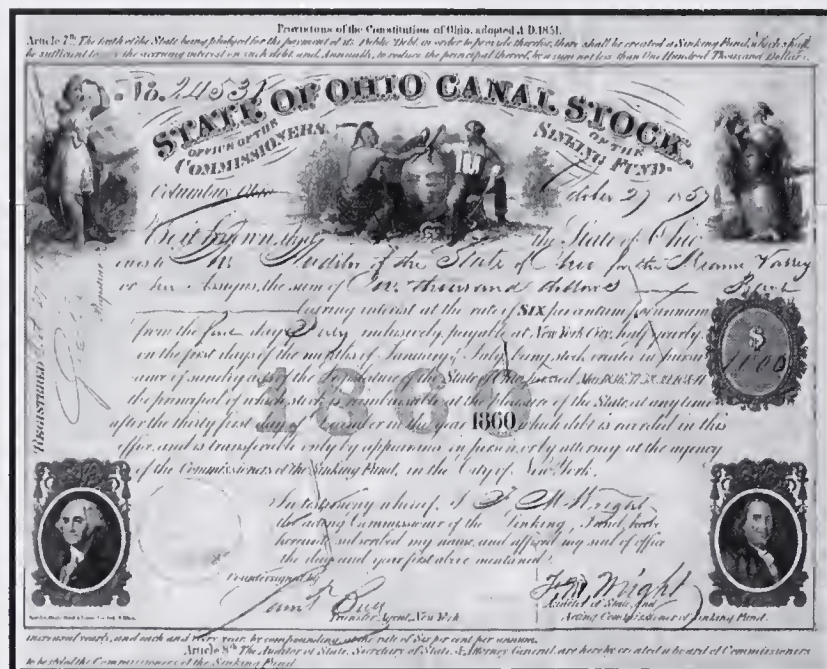 Provisions of the Constitution of Ohio, adopted A.D. 1851.
Article 7th The faith of the State being pledged for the payment of its Public Debt, in order to provide therefor, there shall be created a Sinking Fund, which shall
be sufficient to pay the accruing interest on such debt and Annually, to reduce the principal thereof, by a sum not less than One Hundred Thousand Dollars,
No. 2453
STATE OF OHIO CANAL STOCK.
OFFICE OF THE COMMISSIONERS OF THE SINKING FUND.
Columbus, Ohio October 27 1857
Be it known, that the State of Ohio
owes to The Auditor of the State of Ohio for the Miami Valley Bank
or his Assigns, the sum of One thousand dollars
bearing interest at the rate of SIX per centum per annum
from the first day July inclusively, payable at New York City, half yearly,
on the first days of the months of January & July, being stock created in pursu
ance of sundry acts of the Legislature of the State of Ohio, passed
the principal of which stock is reimbursable at the pleasure of the State, at any time
after the thirty first day of December in the year 1860 which debt is recorded in this
office, and is transferable only by appearance in person, or by attorney at the agency
of the Commissioners of the Sinking Fund, in the City of New York.
1860
$
1000
REGISTERED
Registrar
In testimony whereof, I F. M. Wright
the acting Commissioner of the Sinking Fund, have
hereunto subscribed my name, and affixed my seal of office
the day and year first above mentioned
Countersigned by
Transfer Agent, New York
F. M. Wright
Auditor of State, and
Acting Commissioner of Sinking Fund.
increased yearly, and each and every year, by compounding, at the rate of Six per cent per annum.
Article 8th The Auditor of State, Secretary of State & Attorney General, are hereby created a board of Commissioners
to be styled the Commissioners of the Sinking Fund